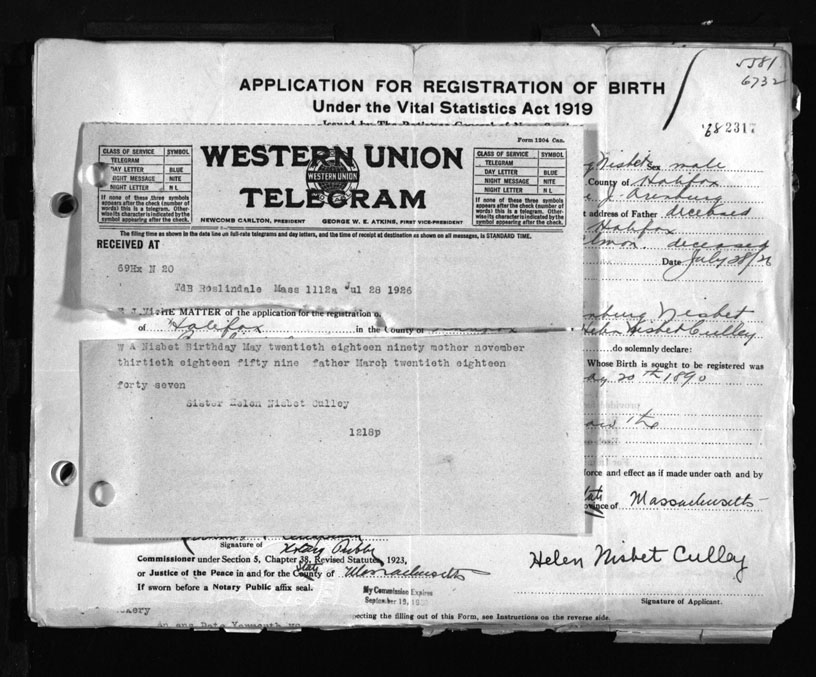 5581
6732
APPLICATION FOR REGISTRATION OF BIRTH
Under the Vital Statistics Act 1919
682317
Form 1204 Can.
CLASS OF SERVICE SYMBOL
TELEGRAM
DAY LETTER BLUE
NIGHT MESSAGE NITE
NIGHT LETTER N L
If none of these three symbols
appears after the check (number of
words) this is a telegram. Other-
wise its character is indicated by the
symbol appearing after the check.
WESTERN UNION
WESTERN UNION
TELEGRAM
NEWCOMB CARLTON, PRESIDENT GEORGE W. E. ATKINS, FIRST VICE-PRESIDENT
CLASS OF SERVICE SYMBOL
TELEGRAM
DAY LETTER BLUE
NIGHT MESSAGE NITE
NIGHT LETTER N L
If none of these three symbols
appears after the check (number of
words) this is a telegram. Other-
wise its character is indicated by the
symbol appearing after the check.
The filing time as shown in the date line on full-rate telegrams and day letters, and the time of receipt at destination as shown on all messages, is STANDARD TIME.
RECEIVED AT
69Hx N 20
Roslindale Mass 1112a Jul 28 1926
Nisbet male
County of Halifax
address of Father deceased
Halifax
deceased
Date July 28/26
THE MATTER of the application for the registration
of Halifax in the County of
Nisbet
Helen Nisbet Culley
do solemnly declare:
Whose Birth is sought to be registered was
20th 1890
W A Nisbet Birthday May twentieth eighteen ninety mother november
thirtieth eighteen fifty nine father March twentieth eighteen
forty seven
Sister Helen Nisbet Culley
1218p
the
force and effect as if made under oath and by
State
Province of Massachusetts
Signature of
Notary Public
Commissioner under Section 5, Chapter 38, Revised Statutes, 1923,
State
or Justice of the Peace in and for the County of Massachusetts
If sworn before a Notary Public affix seal.
My Commission Expires
September 19,
Helen Nisbet Culley
Signature of Applicant.
pecting the filling out of this Form, see Instructions on the reverse side.